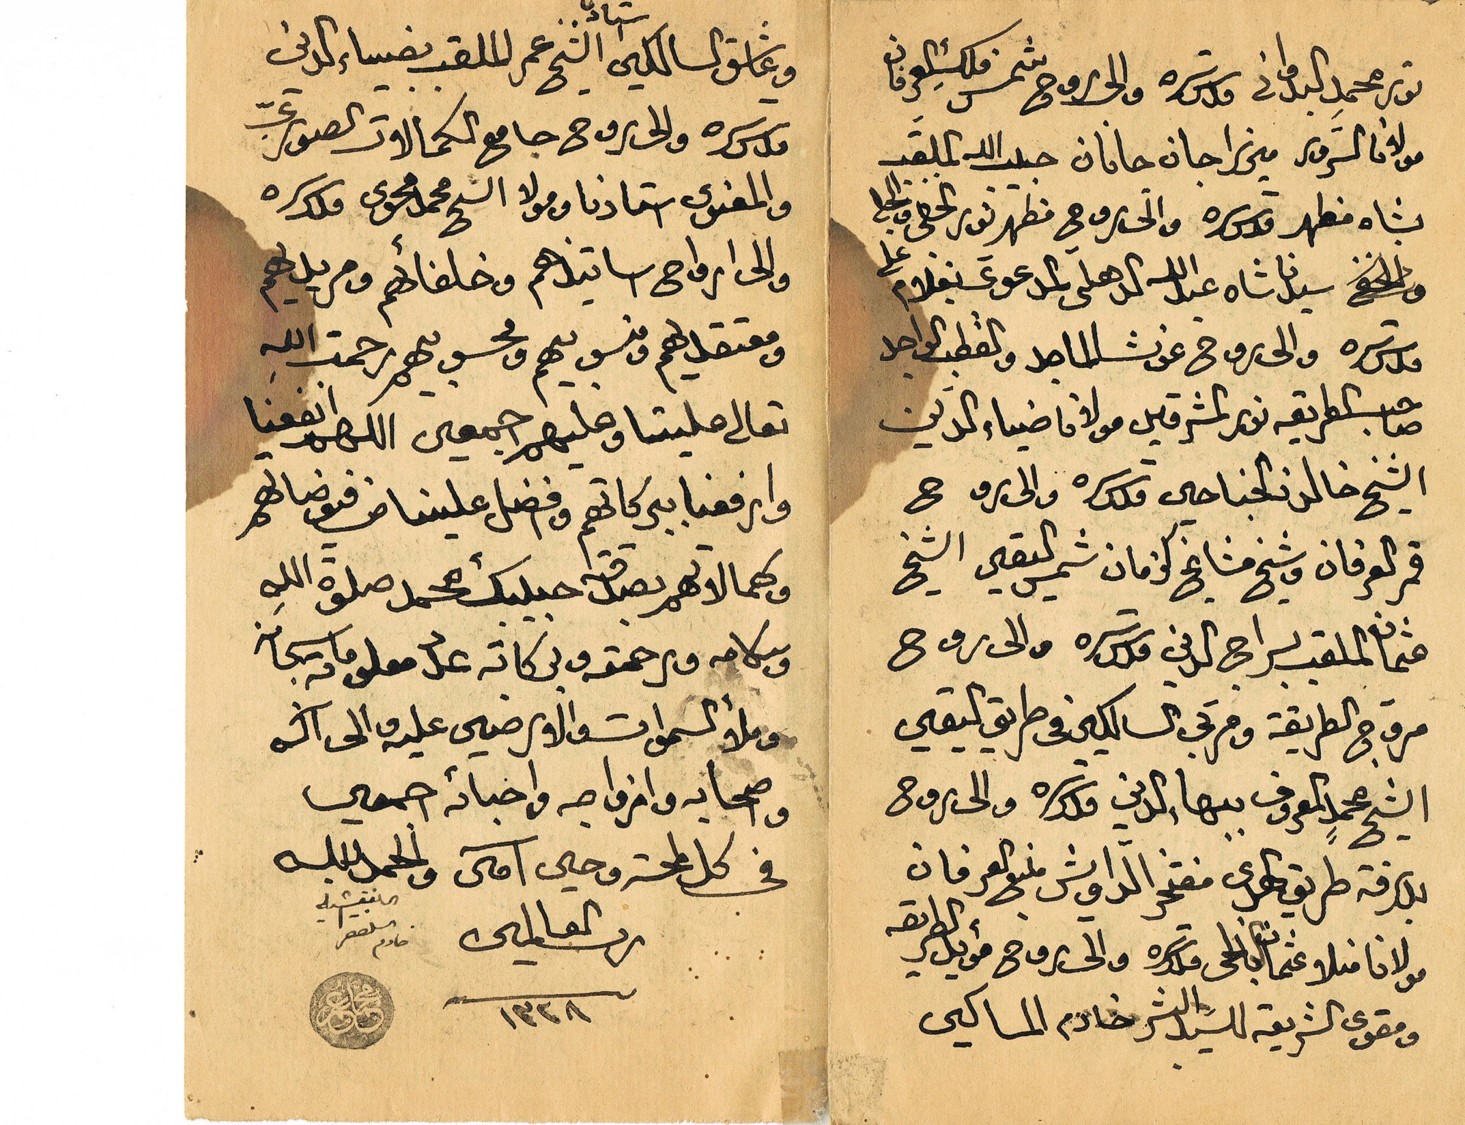 نور محمد البدواني قدس سره والى روح شمس فلك العرفان
مولانا ميرزا جان جانان حبيب الله الملقب
بشاه مظهر قدس سره والى روح مظهر نور الخفي والجلي
سيدنا شاه عبد الله الدهلي المدعو بغلام علي
قدس سره والى روح غوث الماجد والقطب الواجد
صاحب الطريقه نور المشرقين مولانا ضياء الدين
الشيخ خالد ذي الجناحين قدس سره والى روح
قمر العرفان وشيخ مشايخ الزمان شمس اليقين الشيخ
عثمان الملقب بسراج الدين قدس سره والى روح
مروج الطريقة ومربي السالكين في طريق اليقين
الشيخ محمد المعروف ببهاء الدين قدس سره والى روح
بدرقة طريق الهدى مفتخر الدراويش منبع العرفان
مولانا منلا عثمان قدس سره والى روح مؤيد الطريقه
ومقوي الشريعة السيد البشر خادم المساكين
السالكين استاذنا الشيخ عمر الملقب بضياء الدين
قدس سره والى روح جامع الكمالات الصوري
والمعنوي استاذنا ومولانا الشيخ محمد قدس سره
والى ارواح اساتيذهم وخلفائهم ومريديهم
ومعتقديهم ومنسوبيهم ومحسوبيهم رحمت الله
تعالى علينا وعليهم اجمعين اللهم انفعنا
وارفعنا ببركاتهم وافضل علينا من فيوضاتهم
وكمالاتهم بصدقة حبيبك محمد صلوة الله
وسلامه ورحمته وبركاته عدد معلوماته
وملأ السموات والارضين عليه والى آله
واصحابه وازواجه واحبائه اجمعين
في كل لمحة وحين آمين والحمد لله
رب العالمين
١٣٣٨
النقشبندي
خادم